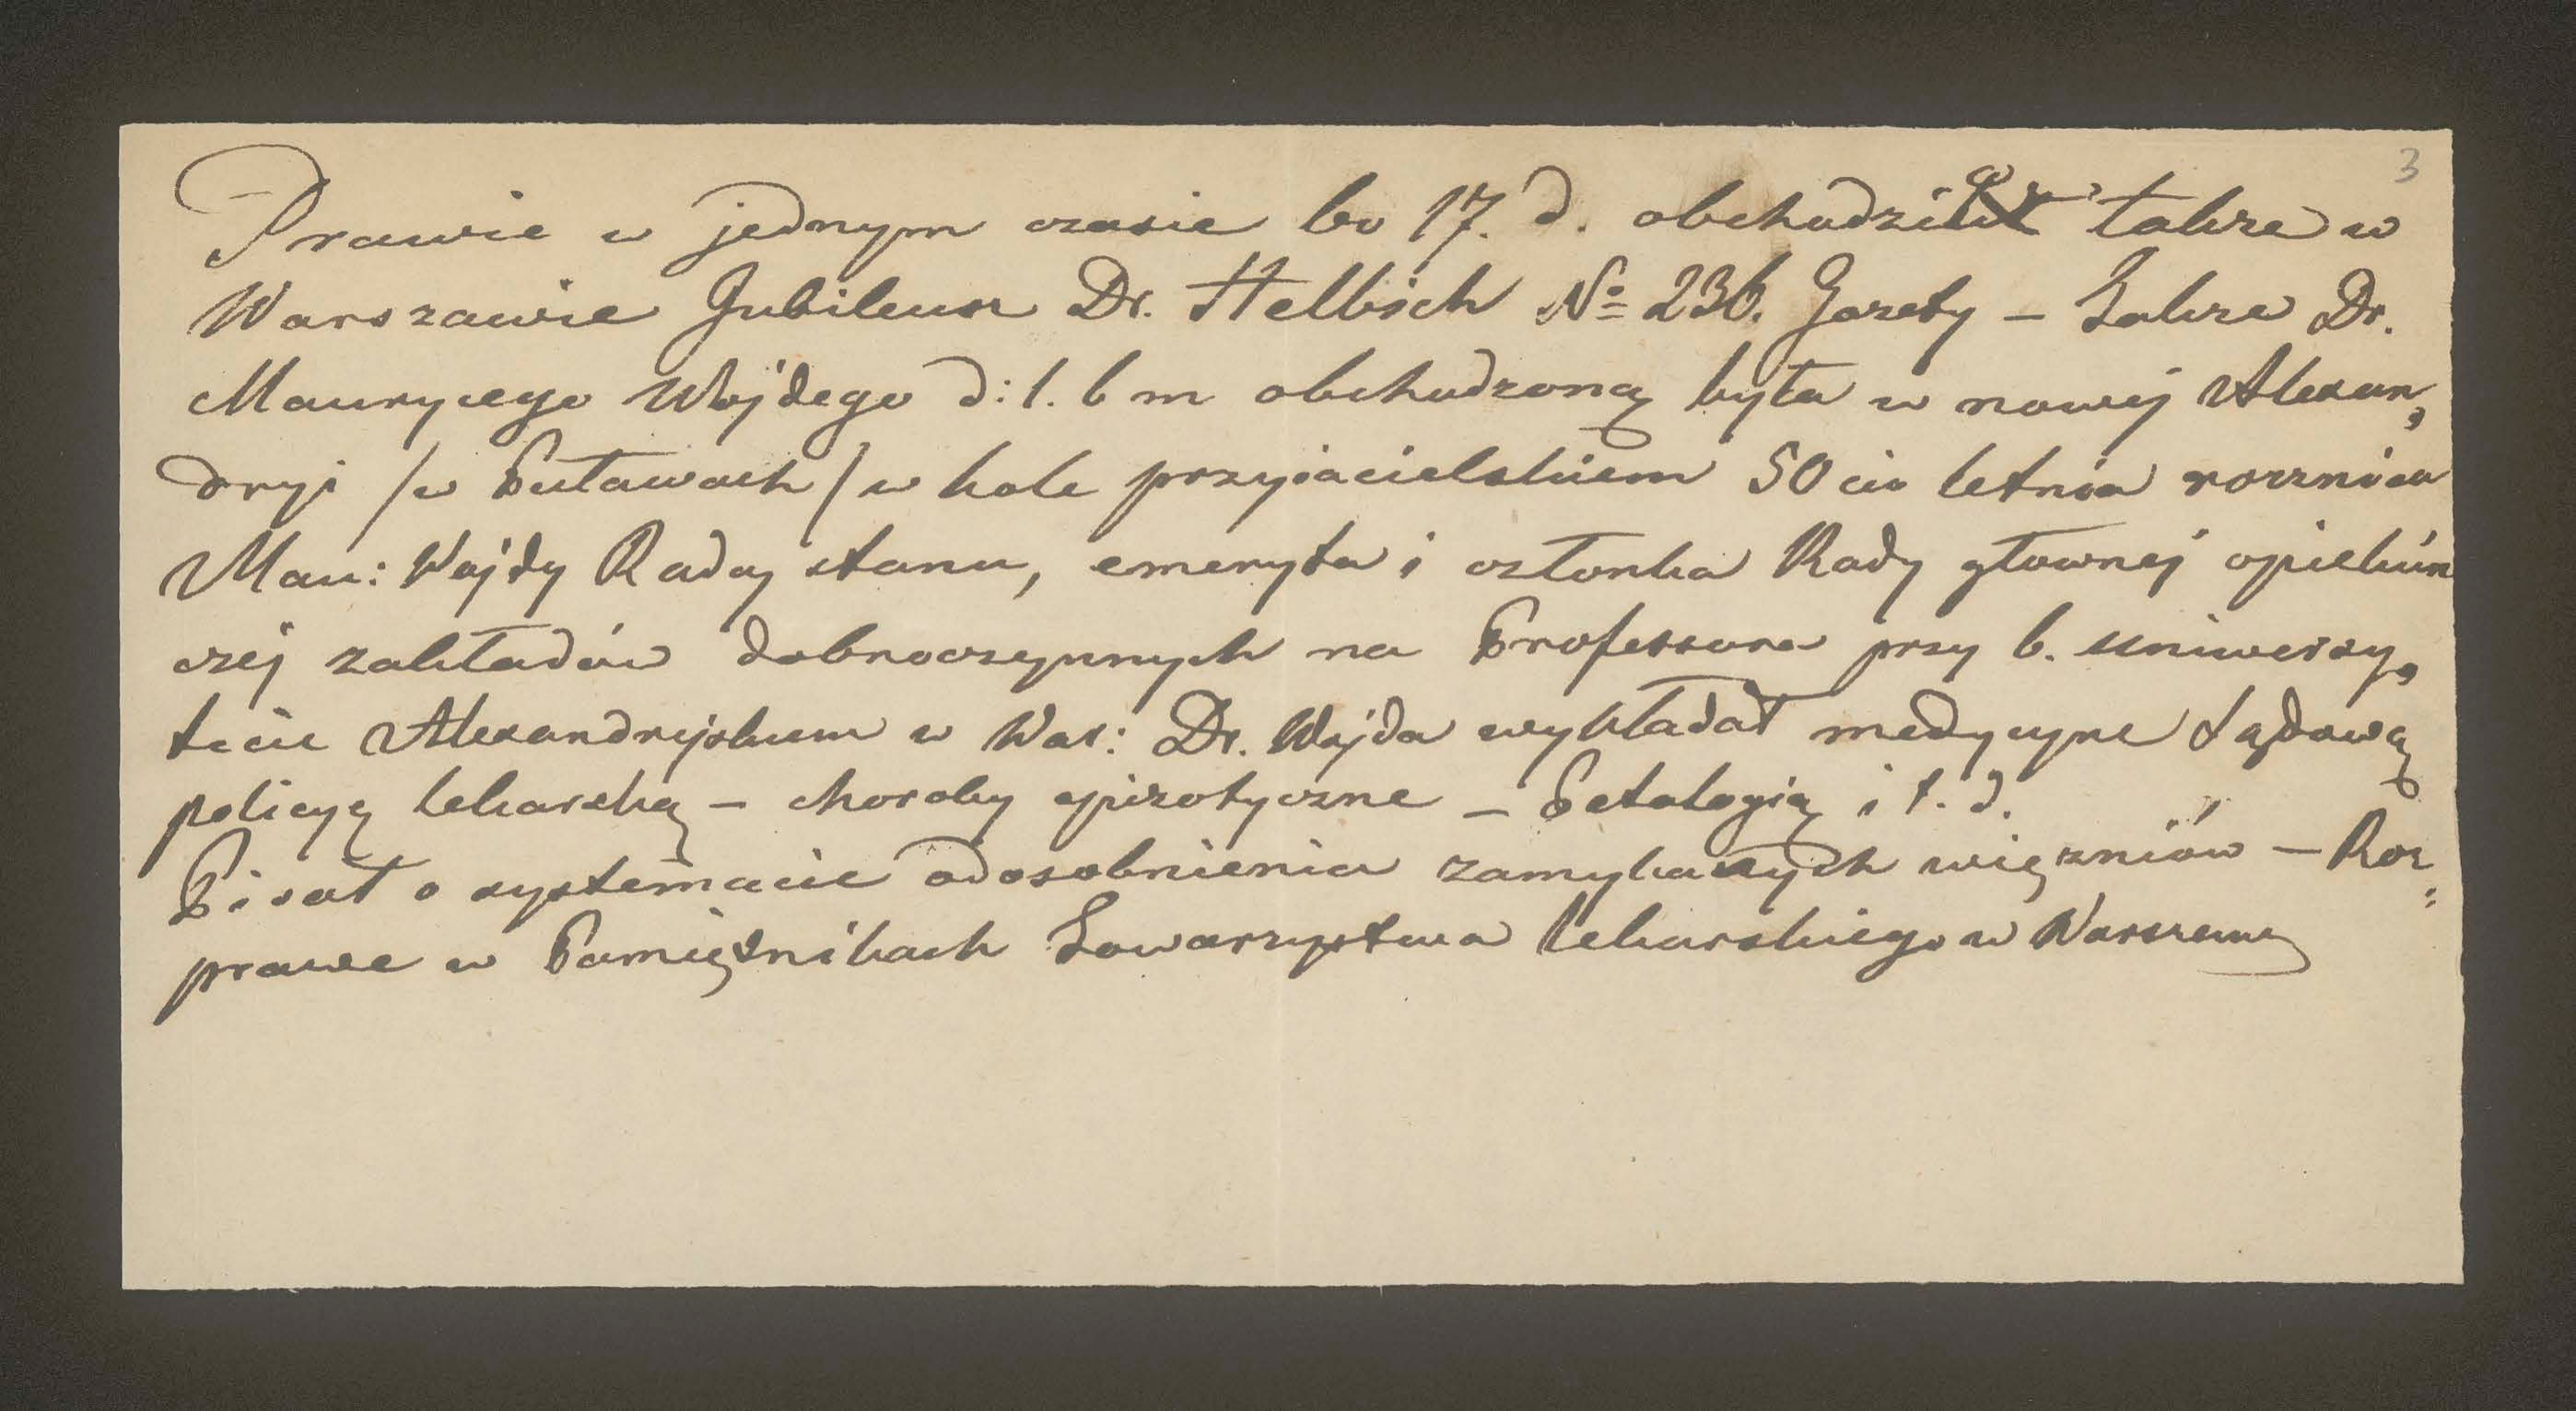 3
Prawie w jednym czasie bo 17. d. obchodził także w
Warszawie Jubileusz Dr. Helbich No 236. Gazety – Także Dr.
Maurycego Wojdego d: 1. b m obchodzoną była w nowej Alexan,
dryi /w Puławach/ w kole przyiacielskiem 50cio letnia rocznica
Mau: Wojdy Radcy stanu, emeryta i członka Rady głownej opiekún
czéj zakładów dobroczynnych na Professora przy b. uniwersy,
tecie Alexandryjskum w War: Dr. Wojda wykładał medycyne sądową
policyą lekarską – choroby epizotyczne – Patalogią i t. d.
Pisał o systemacie odosobnienia zamykanych więzniów – Roz:
prawe w Pamiętnikach Towarzystwa lekarskiego w Warszawy